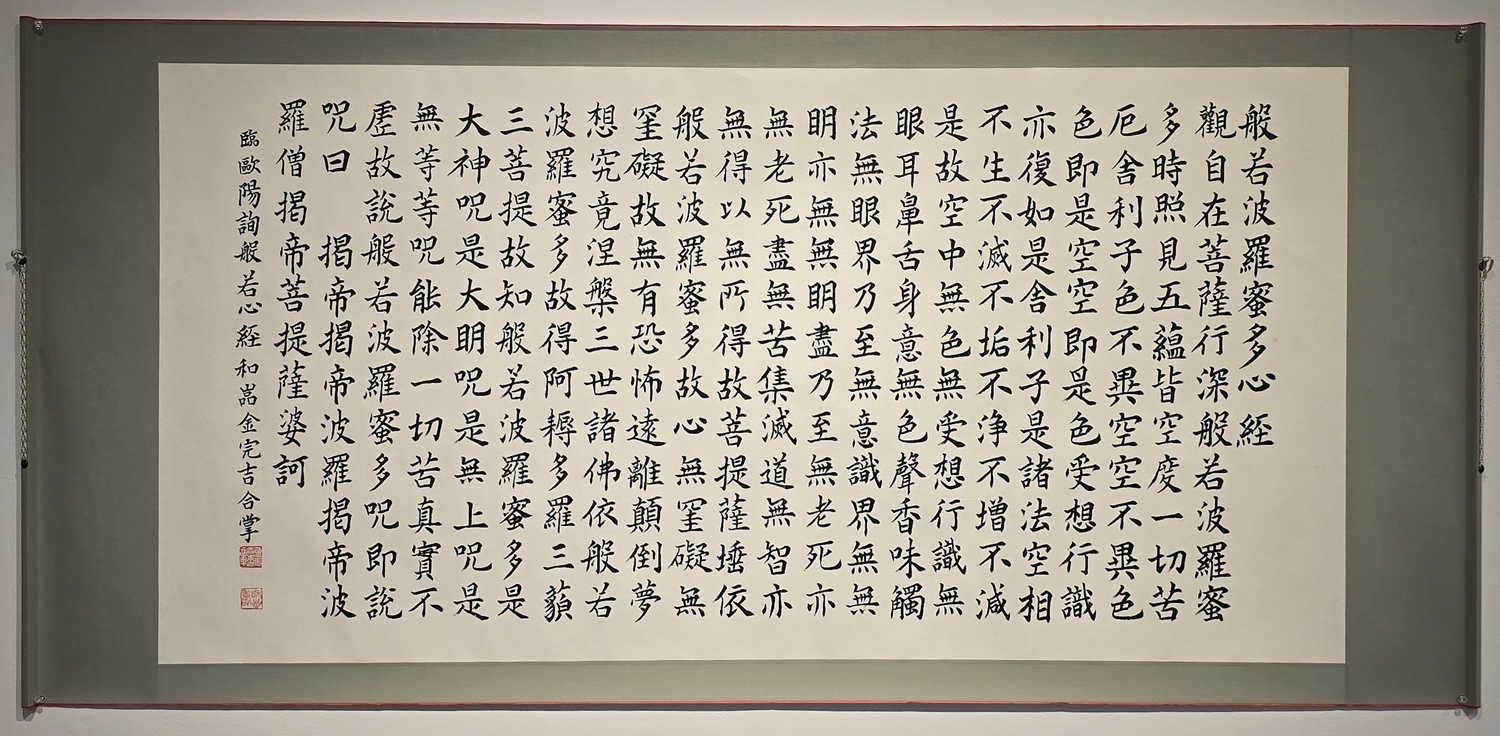 般若波羅蜜多心經
觀自在菩薩行深般若波羅蜜
多時照見五蘊皆空度一切苦
厄舍利子色不異空空不異色
色即是空空即是色受想行識
亦復如是舍利子是諸法空相
不生不滅不垢不淨不增不減
是故空中無色無受想行識無
眼耳鼻舌身意無色聲香味觸
法無眼界乃至無意識界無無
明亦無無明盡乃至無老死亦
無老死盡無苦集滅道無智亦
無得以無所得故菩提薩埵依
般若波羅蜜多故心無罣礙無
罣礙故無有恐怖遠離顛倒夢
想究竟涅槃三世諸佛依般若
波羅蜜多故得阿耨多羅三藐
三菩提故知般若波羅蜜多是
大神呪是大明呪是無上呪是
無等等呪能除一切苦真實不
虛故說般若波羅蜜多呪即說
呪曰 揭帝揭帝波羅揭帝波
羅僧揭帝菩提薩婆訶
臨歐陽詢般若心經和嵒金完吉合掌